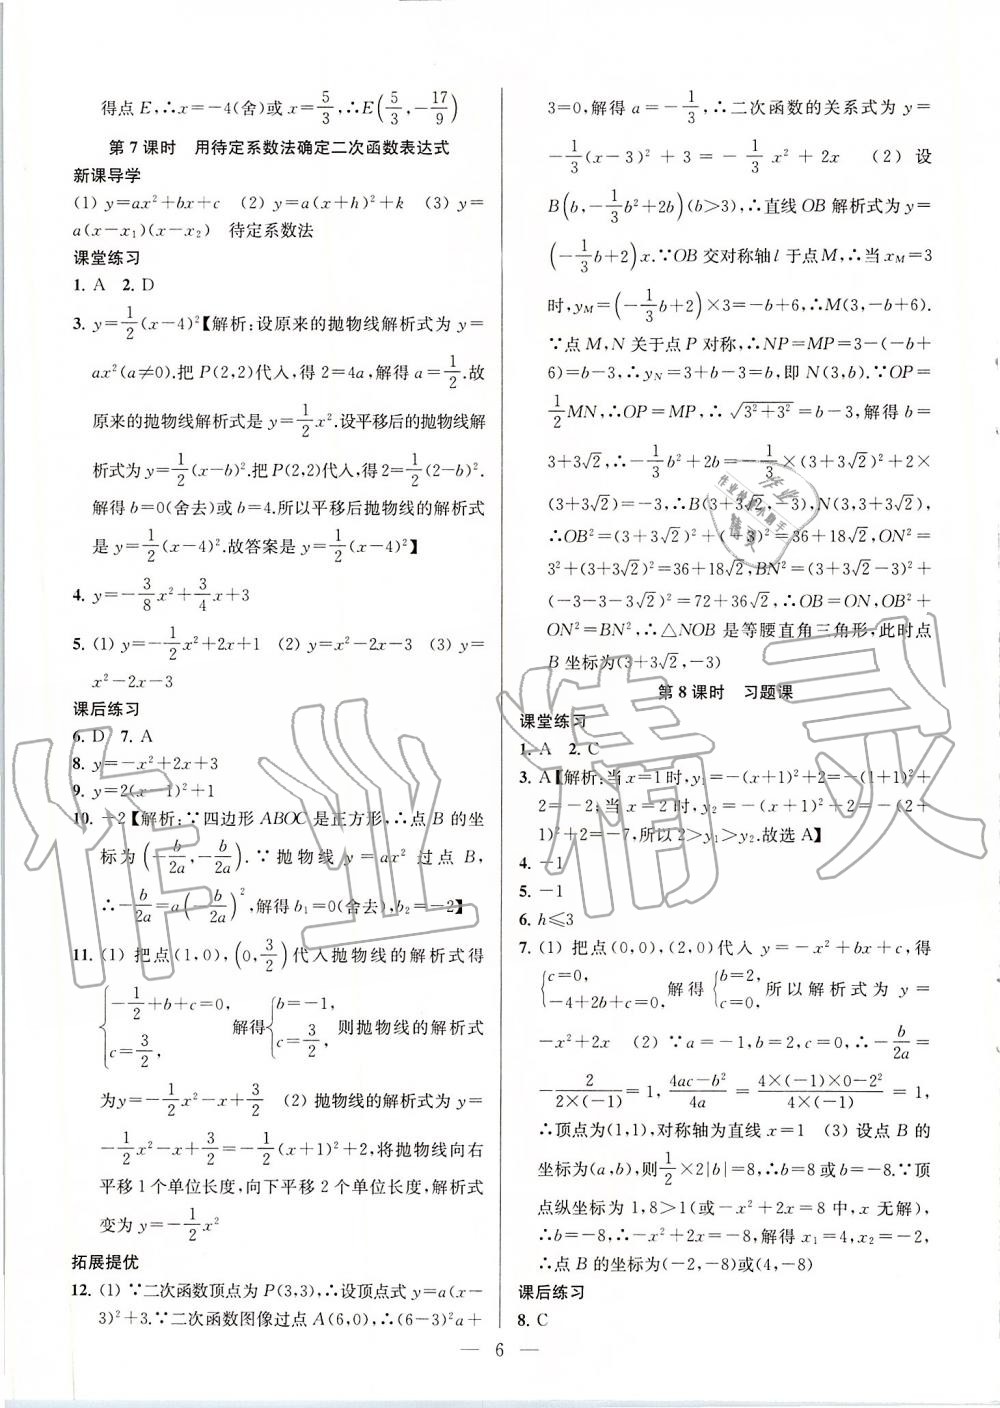 得点 E,∴x=-4(舍)或 x=5/3,∴E(5/3,-17/9)
第 7 课时 用待定系数法确定二次函数表达式
新课导学
(1) y=ax²+bx+c (2) y=a(x+h)²+k (3) y=
a(x-x₁)(x-x₂) 待定系数法
课堂练习
1. A 2. D
3. y=1/2(x-4)²【解析:设原来的抛物线解析式为 y=
ax²(a≠0).把 P(2,2)代入,得 2=4a,解得 a=1/2.故
原来的抛物线解析式是 y=1/2x².设平移后的抛物线解
析式为 y=1/2(x-b)².把 P(2,2)代入,得2=1/2(2-b)².
解得 b=0(舍去)或 b=4.所以平移后抛物线的解析式
是 y=1/2(x-4)².故答案是 y=1/2(x-4)²】
4. y=-3/8x²+3/4x+3
5. (1) y=-1/2x²+2x+1 (2) y=x²-2x-3 (3) y=
x²-2x-3
课后练习
6. D 7. A
8. y=-x²+2x+3
9. y=2(x-1)²+1
10. -2【解析:∵四边形 ABOC 是正方形,∴点 B 的坐
标为(-b/2a,-b/2a).∵抛物线 y=ax² 过点 B,
∴-b/2a=a(-b/2a)²,解得 b₁=0(舍去),b₂=-2】
11. (1) 把点(1,0),(0,3/2)代入抛物线的解析式得
{-1/2+b+c=0, c=3/2, 解得{b=-1, c=3/2, 则抛物线的解析式
为y=-1/2x²-x+3/2 (2) 抛物线的解析式为 y=
-1/2x²-x+3/2=-1/2(x+1)²+2,将抛物线向右
平移 1 个单位长度,向下平移 2 个单位长度,解析式
变为 y=-1/2x²
拓展提优
12. (1) ∵二次函数顶点为 P(3,3),∴设顶点式 y=a(x-
3)²+3.∵二次函数图像过点 A(6,0),∴(6-3)²a+
3=0,解得 a=-1/3,∴二次函数的关系式为 y=
-1/3(x-3)²+3=-1/3x²+2x (2) 设
B(b,-1/3b²+2b)(b>3),∴直线 OB 解析式为 y=
(-1/3b+2)x.∵OB 交对称轴 l 于点 M,∴当 x_M=3
时,y_M=(-1/3b+2)×3=-b+6,∴M(3,-b+6).
∵点 M,N 关于点 P 对称,∴NP=MP=3-(-b+
6)=b-3,∴y_N=3+b-3=b,即 N(3,b).∵OP=
1/2MN,∴OP=MP,∴√(3²+3²)=b-3,解得 b=
3+3√2,∴-1/3b²+2b=-1/3×(3+3√2)²+2×
(3+3√2)=-3,∴B(3+3√2,-3),N(3,3+3√2),
∴OB²=(3+3√2)²+(-3)²=36+18√2,ON²=
3²+(3+3√2)²=36+18√2,BN²=(3+3√2-3)²+
(-3-3-3√2)²=72+36√2,∴OB=ON,OB²+
ON²=BN²,∴△NOB 是等腰直角三角形,此时点
B 坐标为(3+3√2,-3)
第 8 课时 习题课
课堂练习
1. A 2. C
3. A【解析:当 x=1 时,y₁=-(x+1)²+2=-(1+1)²+
2=-2;当 x=2 时,y₂=-(x+1)²+2=-(2+
1)²+2=-7,所以 2>y₁>y₂.故选 A】
4. -1
5. -1
6. h≤3
7. (1) 把点(0,0),(2,0)代入 y=-x²+bx+c,得
{c=0, -4+2b+c=0, 解得 {b=2, c=0, 所以解析式为 y=
-x²+2x (2) ∵a=-1,b=2,c=0,∴-b/2a=
-2/(2×(-1))=1,(4ac-b²)/4a=(4×(-1)×0-2²)/(4×(-1))=1,
∴顶点为(1,1),对称轴为直线 x=1 (3) 设点 B 的
坐标为(a,b),则1/2×2|b|=8,∴b=8或 b=-8.∵顶
点纵坐标为 1,8>1(或-x²+2x=8 中,x 无解),
∴b=-8,∴-x²+2x=-8,解得 x₁=4,x₂=-2,
∴点 B 的坐标为(-2,-8)或(4,-8)
课后练习
8. C
— 6 —
作业精灵